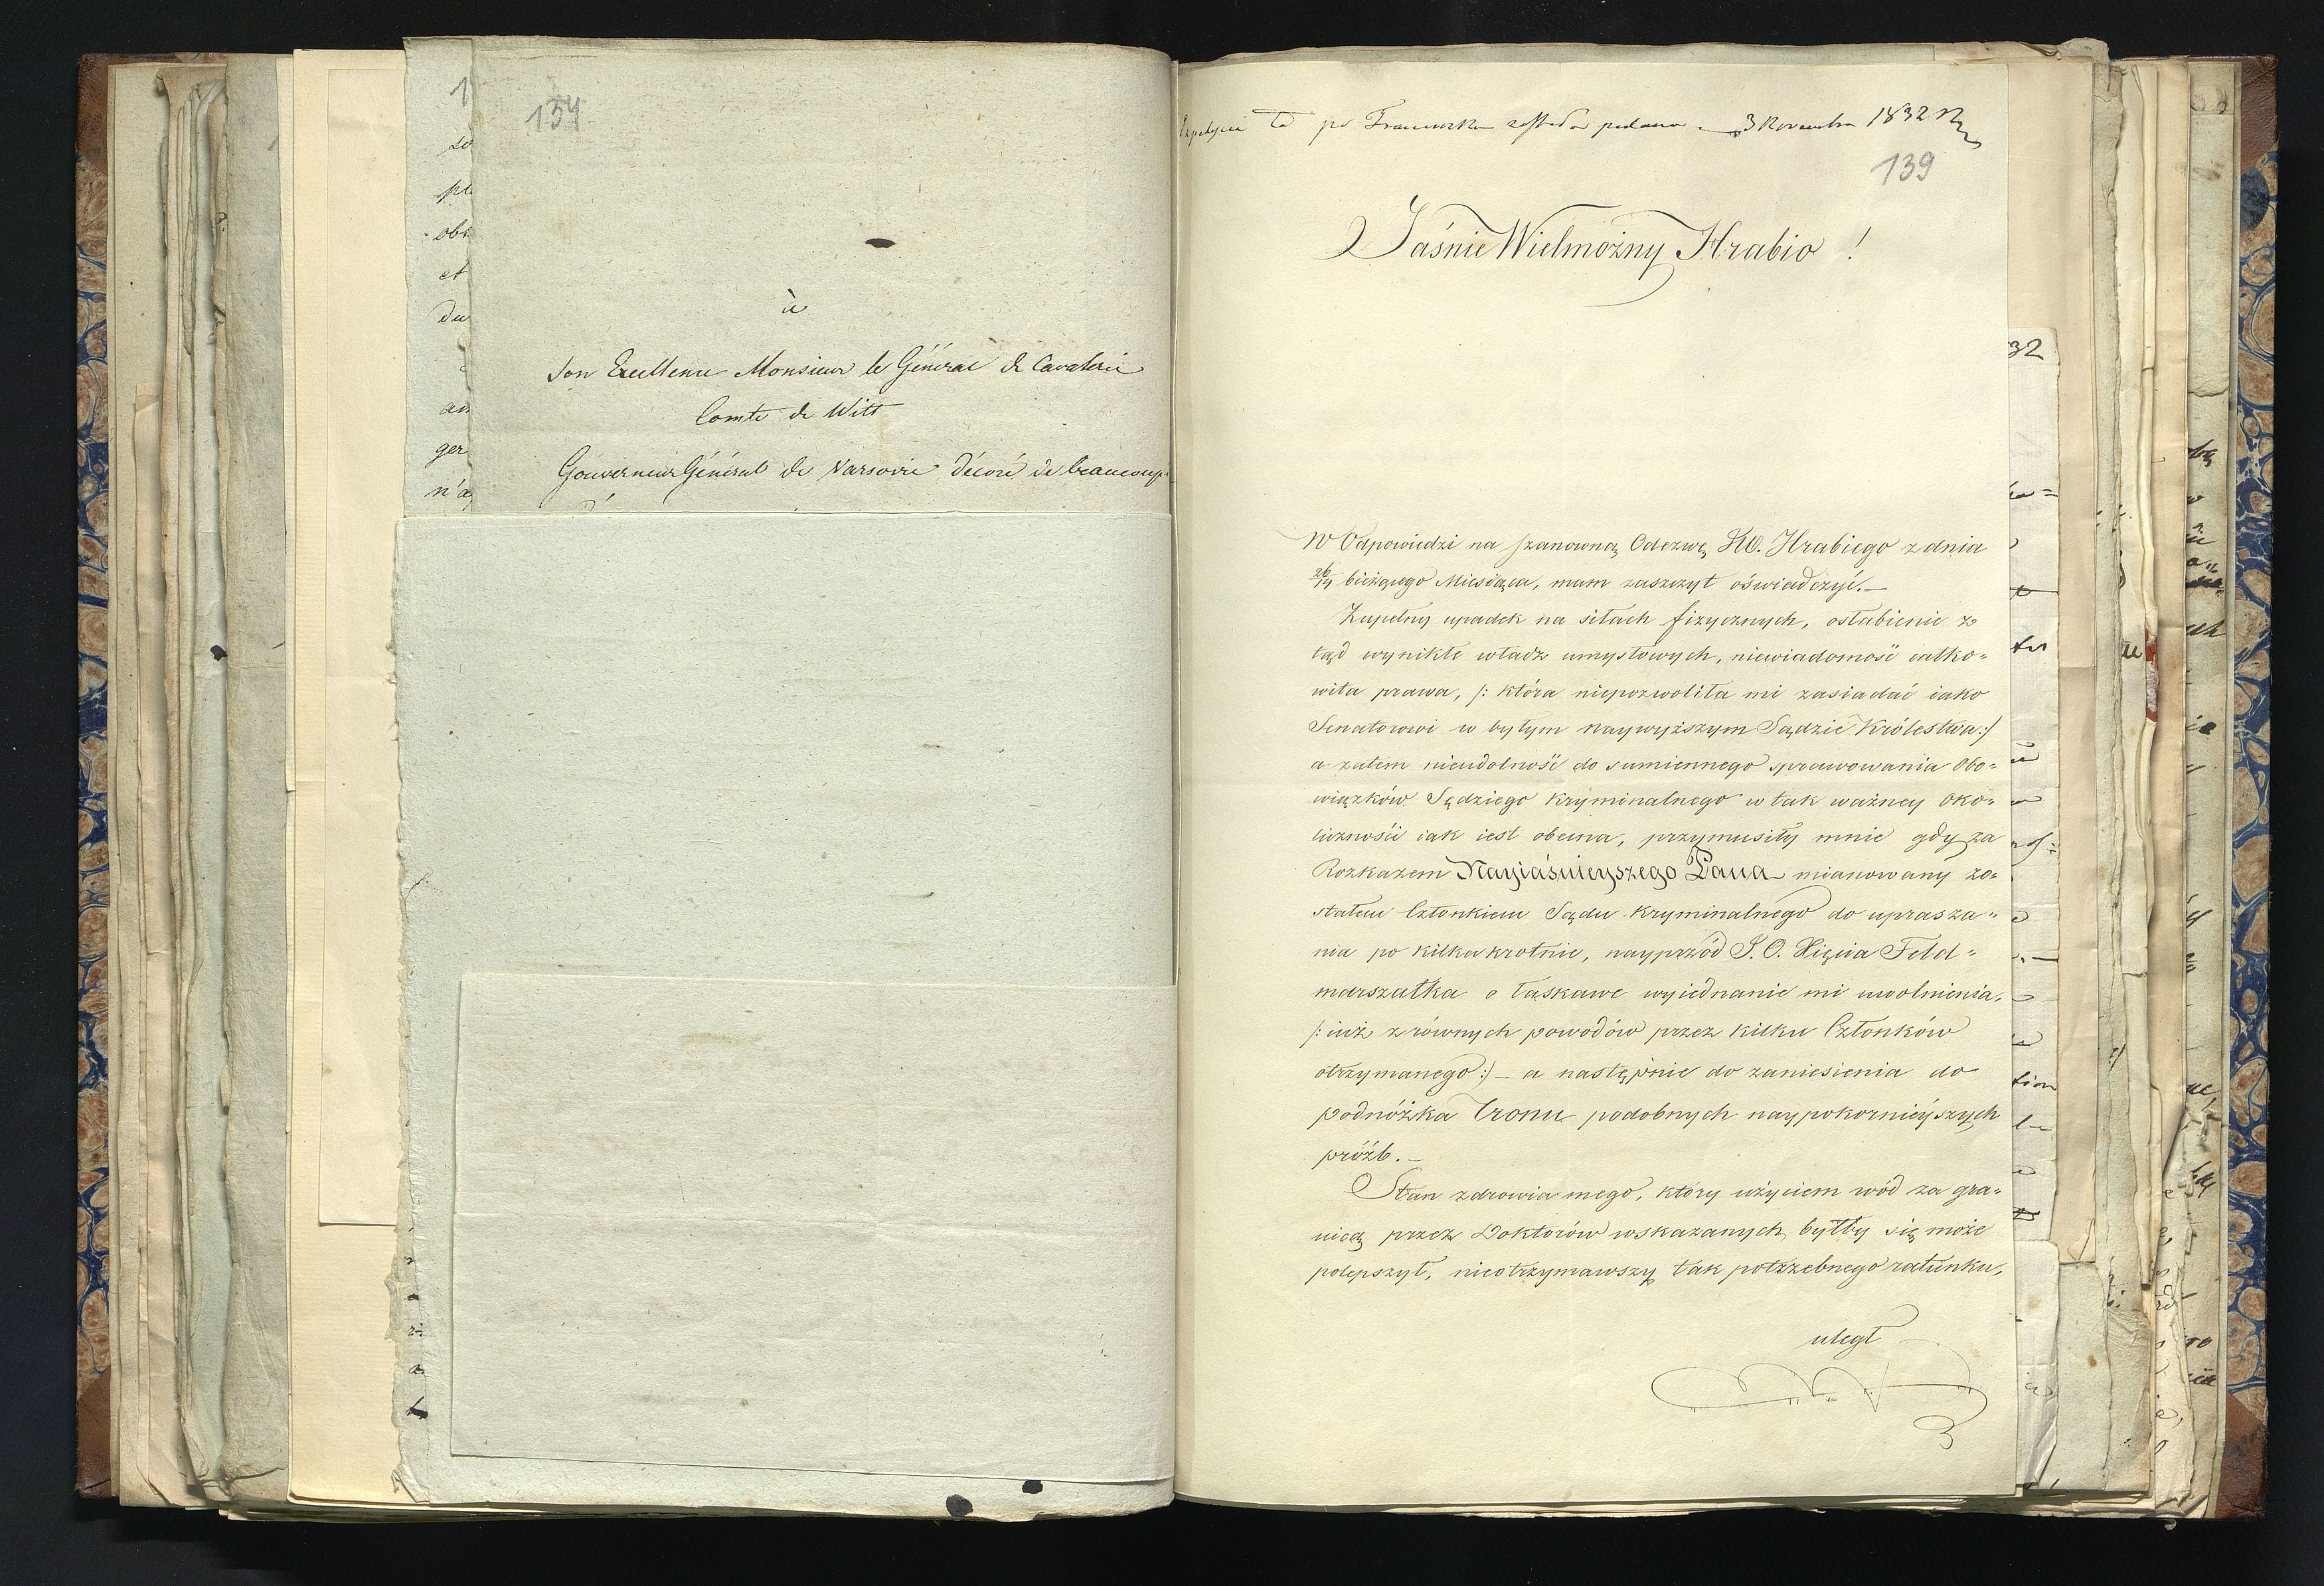 134
à
Son Excellence Monsieur le Général de Cavalerie
Comte de Witt
Gouverneur Général de Varsovie décoré de beaucoup
so
obs
et
du
ger
n'a
ta po Francuzku została podana 3 Novembra 1832
139
Jaśnie Wielmożny Hrabio !
W Odpowiedzi na szanowną Odezwę JW. Hrabiego z dnia
26/14 bieżącego Miesiąca, mam zaszczyt oświadczyć.—
Zupełny upadek na siłach fizycznych, osłabienie z
tąd wynikłe władz umysłowych, niewiadomość całko=
wita prawa, /: która niepozwoliła mi zasiadać iako
Senatorowi w byłym Naywyższym Sądzie Królestwa:/
a zatem nieudolność do sumiennego sprawowania Obo=
wiązków Sędziego Kryminalnego w tak ważney Oko=
liczności iak iest obecna, przymusiły mnie gdy za
Rozkazem Nayiaśnieyszego Pana mianowany zo=
stałem Członkiem Sądu Kryminalnego do uprasza=
nia po kilkakrotnie, nayprzód J. O. Xięcia Feld=
marszałka o łaskawe wyiednanie mi uwolnienia,
/: iuż z równych powodów przez kilku Członków
otrzymanego :/ — a następnie do zaniesienia do
podnóżka Tronu podobnych naypokornieyszych
próźb. —
Stan zdrowia mego, który użyciem wód za gra=
nicą przez Doktorów wskazanych, byłby się może
polepszył, nieotrzymawszy tak potrzebnego ratunku,
uległ
32